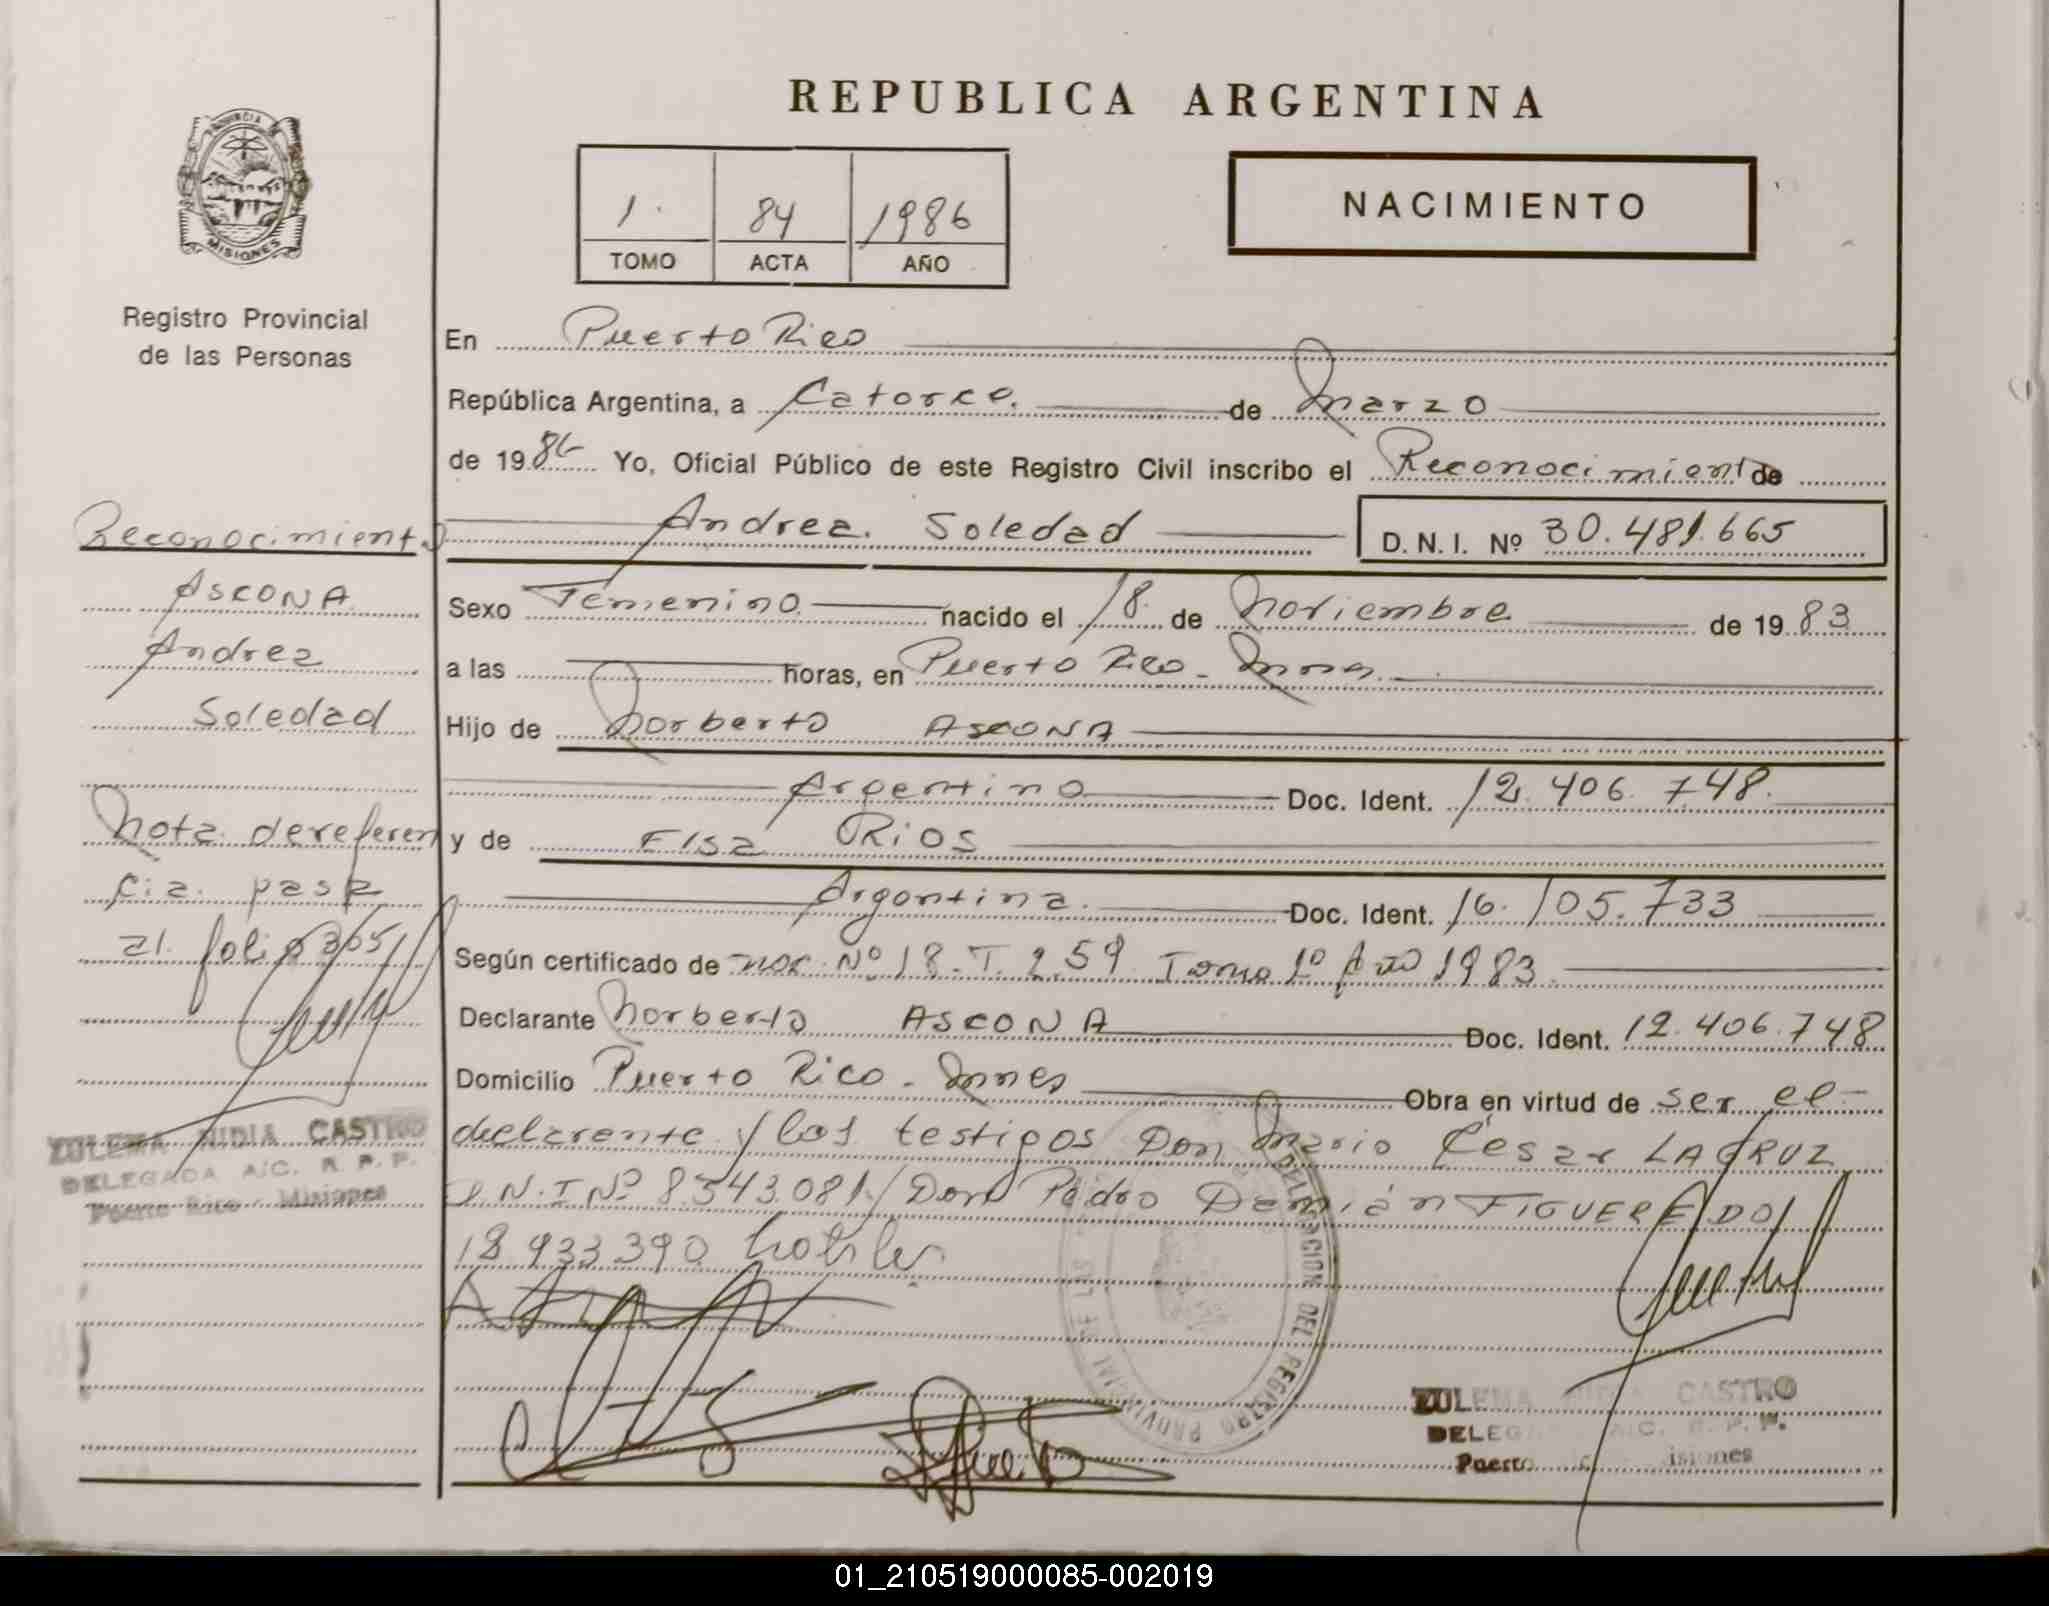 REPUBLICA ARGENTINA
PROVINCIA DE
MISIONES
Registro Provincial
de las Personas
1. 84 1986
TOMO ACTA AÑO
NACIMIENTO
En Puerto Rico
República Argentina, a Catorce. de Marzo
de 1986 Yo, Oficial Público de este Registro Civil inscribo el Reconocimiento de
Andrea. Soledad D. N. I. Nº 30.481.665
Sexo Femenino nacido el 18. de Noviembre de 1983
a las horas, en Puerto Rico - Mnes.
Hijo de Norberto ASCONA
Argentino Doc. Ident. 12.406.748.
y de Elsa RIOS
Argentina. Doc. Ident. 16.105.733
Según certificado de nac. Nº 18. T. 259 Tomo 1º Año 1983
Declarante Norberto ASCONA Doc. Ident. 12.406.748
Domicilio Puerto Rico - Mnes Obra en virtud de ser el
declarante y los testigos Don Mario César LACRUZ
D.N.I Nº 8.543.081/ Don Pedro Damián FIGUEREDO/
18.933.390 habiles
Reconocimiento
ASCONA
Andrea
Soledad
Nota de referen
cia. pasa
al folio 365
ZULEMA NIDIA CASTRO
DELEGADA A/C. R. P. P.
Puerto Rico - Misiones
DELEGACION DEL REGISTRO PROVINCIAL DE LAS
ZULEMA NIDIA CASTRO
DELEG A/C. R. P. P.
Puerto isiones
01_210519000085-002019